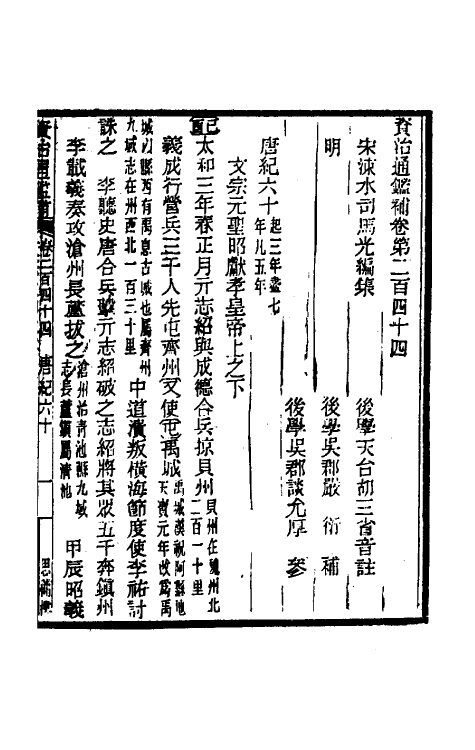 資治通鑑補卷第二百四十四
宋涑水司馬光編集
後學天台胡三省音註
明
後學吳郡嚴衍補
後學吳郡談允厚參
唐紀六十起三年盡七年凡五年
文宗元聖昭獻孝皇帝上之下
己酉太和三年春正月亓志紹與成德合兵掠貝州貝州在魏州北二百一十里
義成行營兵三千人先屯齊州又使屯禹城禹城漢祝阿縣地天寶元年改爲禹
城以縣西有禹息古城也屬齊州九域志在州西北一百三十里中道潰叛橫海節度使李祐討
誅之 李聽史唐合兵擊亓志紹破之志紹將其眾五千奔鎮州
李載義奏攻滄州長蘆拔之滄州治清池縣九域志長蘆鎮屬清池 甲辰昭義
資治通鑑補 卷二百四十四 唐紀六十 思補樓